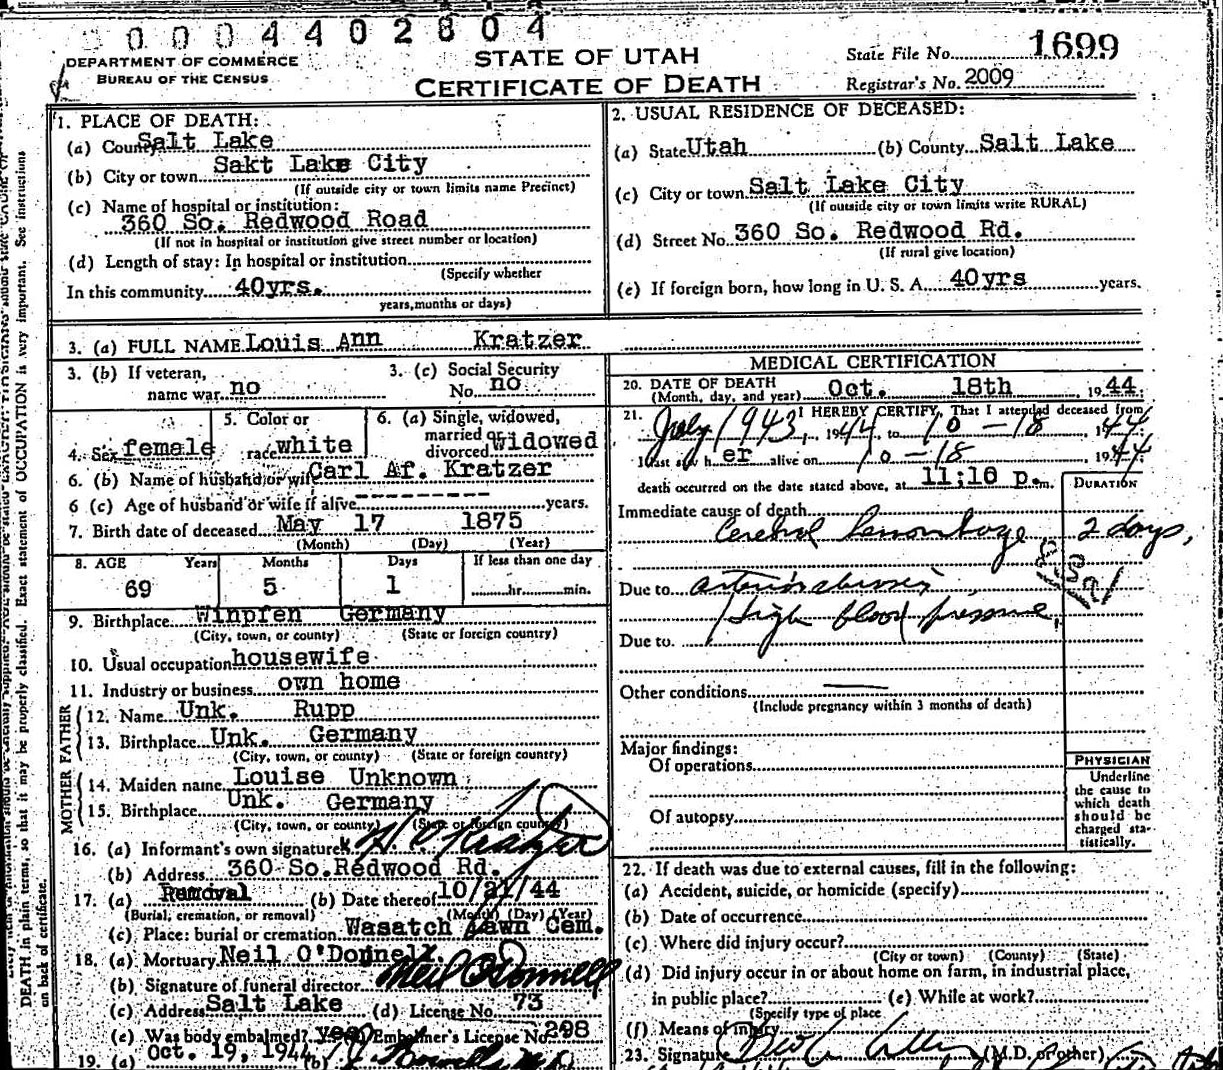 0004402804
DEPARTMENT OF COMMERCE
BUREAU OF THE CENSUS
STATE OF UTAH
CERTIFICATE OF DEATH
State File No. 1699
Registrar's No. 2009
1. PLACE OF DEATH:
(a) County Salt Lake
(b) City or town Sakt Lake City
(If outside city or town limits name Precinct)
(c) Name of hospital or institution:
360 So. Redwood Road
(If not in hospital or institution give street number or location)
(d) Length of stay: In hospital or institution
(Specify whether
In this community 40yrs.
years, months or days)
2. USUAL RESIDENCE OF DECEASED:
(a) State Utah (b) County Salt Lake
(c) City or town Salt Lake City
(If outside city or town limits write RURAL)
(d) Street No. 360 So. Redwood Rd.
(If rural give location)
(e) If foreign born, how long in U. S. A. 40yrs years.
3. (a) FULL NAME Louis Ann Kratzer
3. (b) If veteran, name war no
3. (c) Social Security No. no
4. Sex female
5. Color or race white
6. (a) Single, widowed, married or divorced widowed
6. (b) Name of husband or wife Carl Af. Kratzer
6 (c) Age of husband or wife if alive ---------- years.
7. Birth date of deceased May 17 1875
(Month) (Day) (Year)
8. AGE Years Months Days If less than one day
69 5 1 hr. min.
9. Birthplace Winpfen Germany
(City, town, or county) (State or foreign country)
10. Usual occupation housewife
11. Industry or business own home
FATHER
12. Name Unk. Rupp
13. Birthplace Unk. Germany
(City, town, or county) (State or foreign country)
MOTHER
14. Maiden name Louise Unknown
15. Birthplace Unk. Germany
(City, town, or county) (State or foreign country)
16. (a) Informant's own signature Kratzer
(b) Address 360 So. Redwood Rd.
17. (a) Removal (b) Date thereof 10/21/44
(Burial, cremation, or removal) (Month) (Day) (Year)
(c) Place: burial or cremation Wasatch Lawn Cem.
18. (a) Mortuary Neil O'Donnell
(b) Signature of funeral director Neil O'Donnell
(c) Address Salt Lake (d) License No. 73
(e) Was body embalmed? yes Embalmer's License No. 298
19. (a) Oct. 19, 1944 (b)
MEDICAL CERTIFICATION
20. DATE OF DEATH
(Month, day, and year) Oct. 18th, 1944.
21. I HEREBY CERTIFY, That I attended deceased from
July 1943, 1944, to 10-18, 1944
I last saw her alive on 10-18, 1944
death occurred on the date stated above, at 11:10 p. m.
DURATION
Immediate cause of death
Cerebral hemorrhage 2 days,
Due to arteriosclerosis
High blood pressure,
Due to.
Other conditions —
(Include pregnancy within 3 months of death)
Major findings:
Of operations
Of autopsy
PHYSICIAN
Underline
the cause to
which death
should be
charged sta-
tistically.
22. If death was due to external causes, fill in the following:
(a) Accident, suicide, or homicide (specify)
(b) Date of occurrence
(c) Where did injury occur?
(City or town) (County) (State)
(d) Did injury occur in or about home on farm, in industrial place,
in public place? (e) While at work?
(Specify type of place
(f) Means of injury
23. Signature (M.D. or other)
DEATH in plain terms, so that it may be properly classified. Exact statement of OCCUPATION is very important. See instructions
on back of certificate.